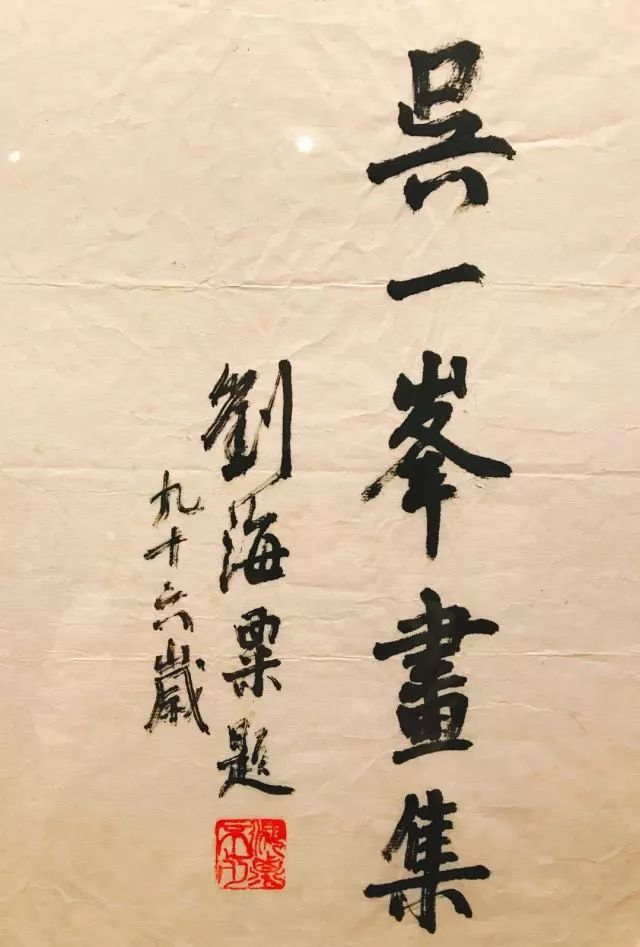 吴一峯畫集
劉海粟題
九十六歲